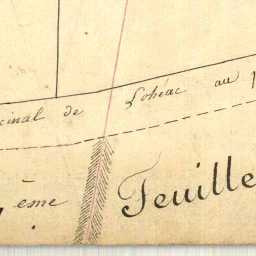 cinal de Lohéac au
ème Feuille